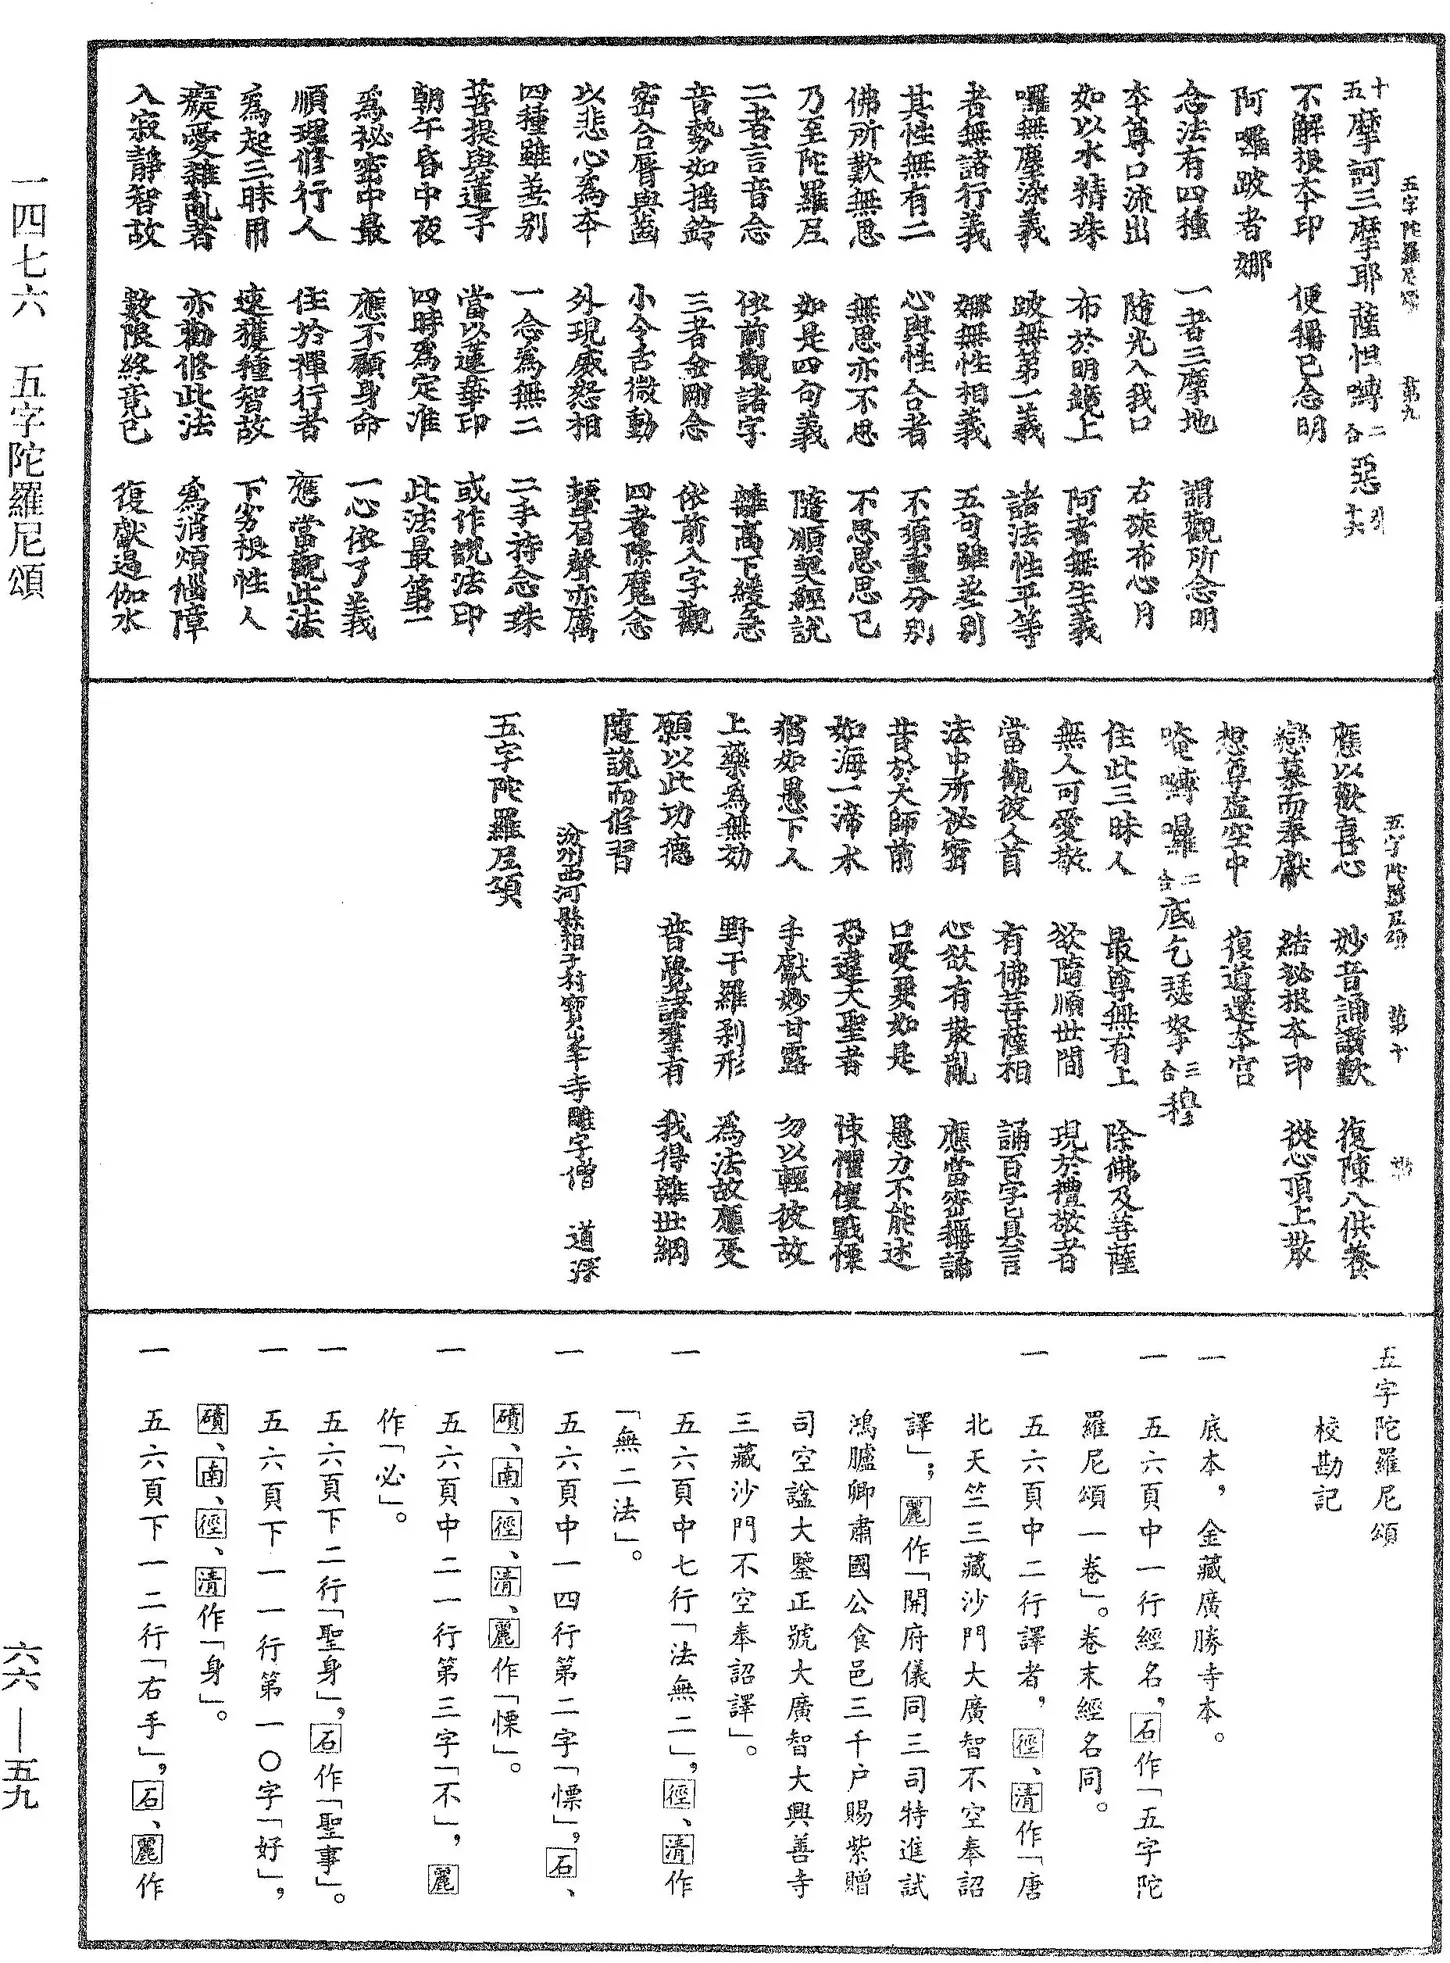 五字陀羅尼頌　第九
十五摩訶三摩耶薩怛嚩二合惡引十六
不解根本印　便稱已念明
阿囉跛者娜
念法有四種　一者三摩地　謂觀所念明
本尊口流出　隨光入我口　右旋布心月
如以水精珠　布於明鏡上　阿者無生義
囉無塵染義　跛無第一義　諸法性平等
者無諸行義　娜無性相義　五句雖差別
其性無有二　心與性合者　不須重分別
佛所歎無思　無思亦不思　不思思思已
乃至陀羅尼　如是四句義　隨順契經說
二者言音念　依前觀諸字　離高下緩急
音勢如搖鈴　三者金剛念　依前入字觀
密合脣與齒　小令舌微動　四者降魔念
以悲心為本　外現威怒相　顰眉聲亦厲
四種雖差別　一念為無二　二手持念珠
菩提與蓮子　當以蓮華印　或作說法印
朝午昏中夜　四時為定准　此法最第一
為祕密中最　應不顧身命　一心依了義
順理修行人　住於禪行者　應當觀此法
為起三昧用　速獲種智故　下劣根性人
癡愛雜亂者　亦勸修此法　為消煩惱障
入寂靜智故　數限終竟已　復獻遏伽水
五字陀羅尼頌　第十
應以歡喜心　妙音誦讚歎　復陳八供養
戀慕而奉獻　結祕根本印　從心頂上散
想尊虛空中　復道還本宮
唵嚩囉二合底乞瑟拏三合穆
住此三昧人　最尊無有上　除佛及菩薩
無人可愛敬　欲隨順世間　現於禮敬者
當觀彼人首　有佛菩薩相　誦百字真言
法中所祕密　心欲有散亂　應當密稱誦
昔於大師前　口受要如是　愚力不能述
如海一渧水　恐違大聖者　悚懼懷戰慄
猶如愚下人　手獻妙甘露　勿以輕彼故
上藥為無効　野干羅剎形　為法故應受
願以此功德　普覺諸羣有　我得離世網
隨說而修習
汾州西河縣相子村寶峯寺雕字僧　道深
五字陀羅尼頌
五字陀羅尼頌
校勘記
一　底本，金藏廣勝寺本。
一　五六頁中一行經名，石作「五字陀
羅尼頌一卷」。卷末經名同。
一　五六頁中二行譯者，徑、清作「唐
北天竺三藏沙門大廣智不空奉詔
譯」；麗作「開府儀同三司特進試
鴻臚卿肅國公食邑三千户賜紫贈
司空諡大鑒正號大廣智大興善寺
三藏沙門不空奉詔譯」。
一　五六頁中七行「法無二」，徑、清作
「無二法」。
一　五六頁中一四行第二字「慄」，石、
磧、南、徑、清、麗作「慄」。
一　五六頁中二一行第三字「不」，麗
作「必」。
一　五六頁下二行「聖身」，石作「聖事」。
一　五六頁下一一行第一〇字「好」，
磧、南、徑、清作「身」。
一　五六頁下一二行「右手」，石、麗作
一四七六　五字陀羅尼頌
六六—五九